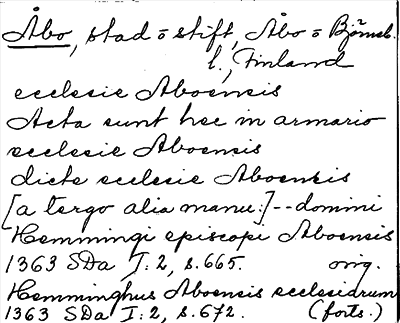 Åbo, stad o stift, Åbo o Björneb.
l., Finland
ecclesie Aboensis
Acta sunt hec in armario
ecclesie Aboensis
dicte ecclesie Aboensis
[a tergo alia manu:]--domini
Hemmingi episcopi Aboensis
1363 SDa I:2, s.665. orig.
Hemminghus Aboensis ecclesiarum
1363 SDa I:2, s.672. (forts.)